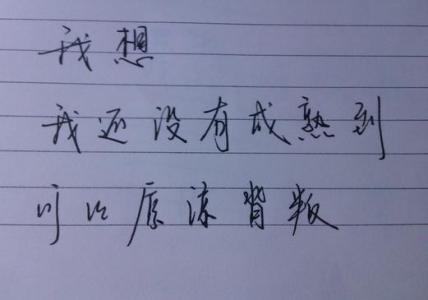 我想
我还没有成熟到
可以原谅背叛